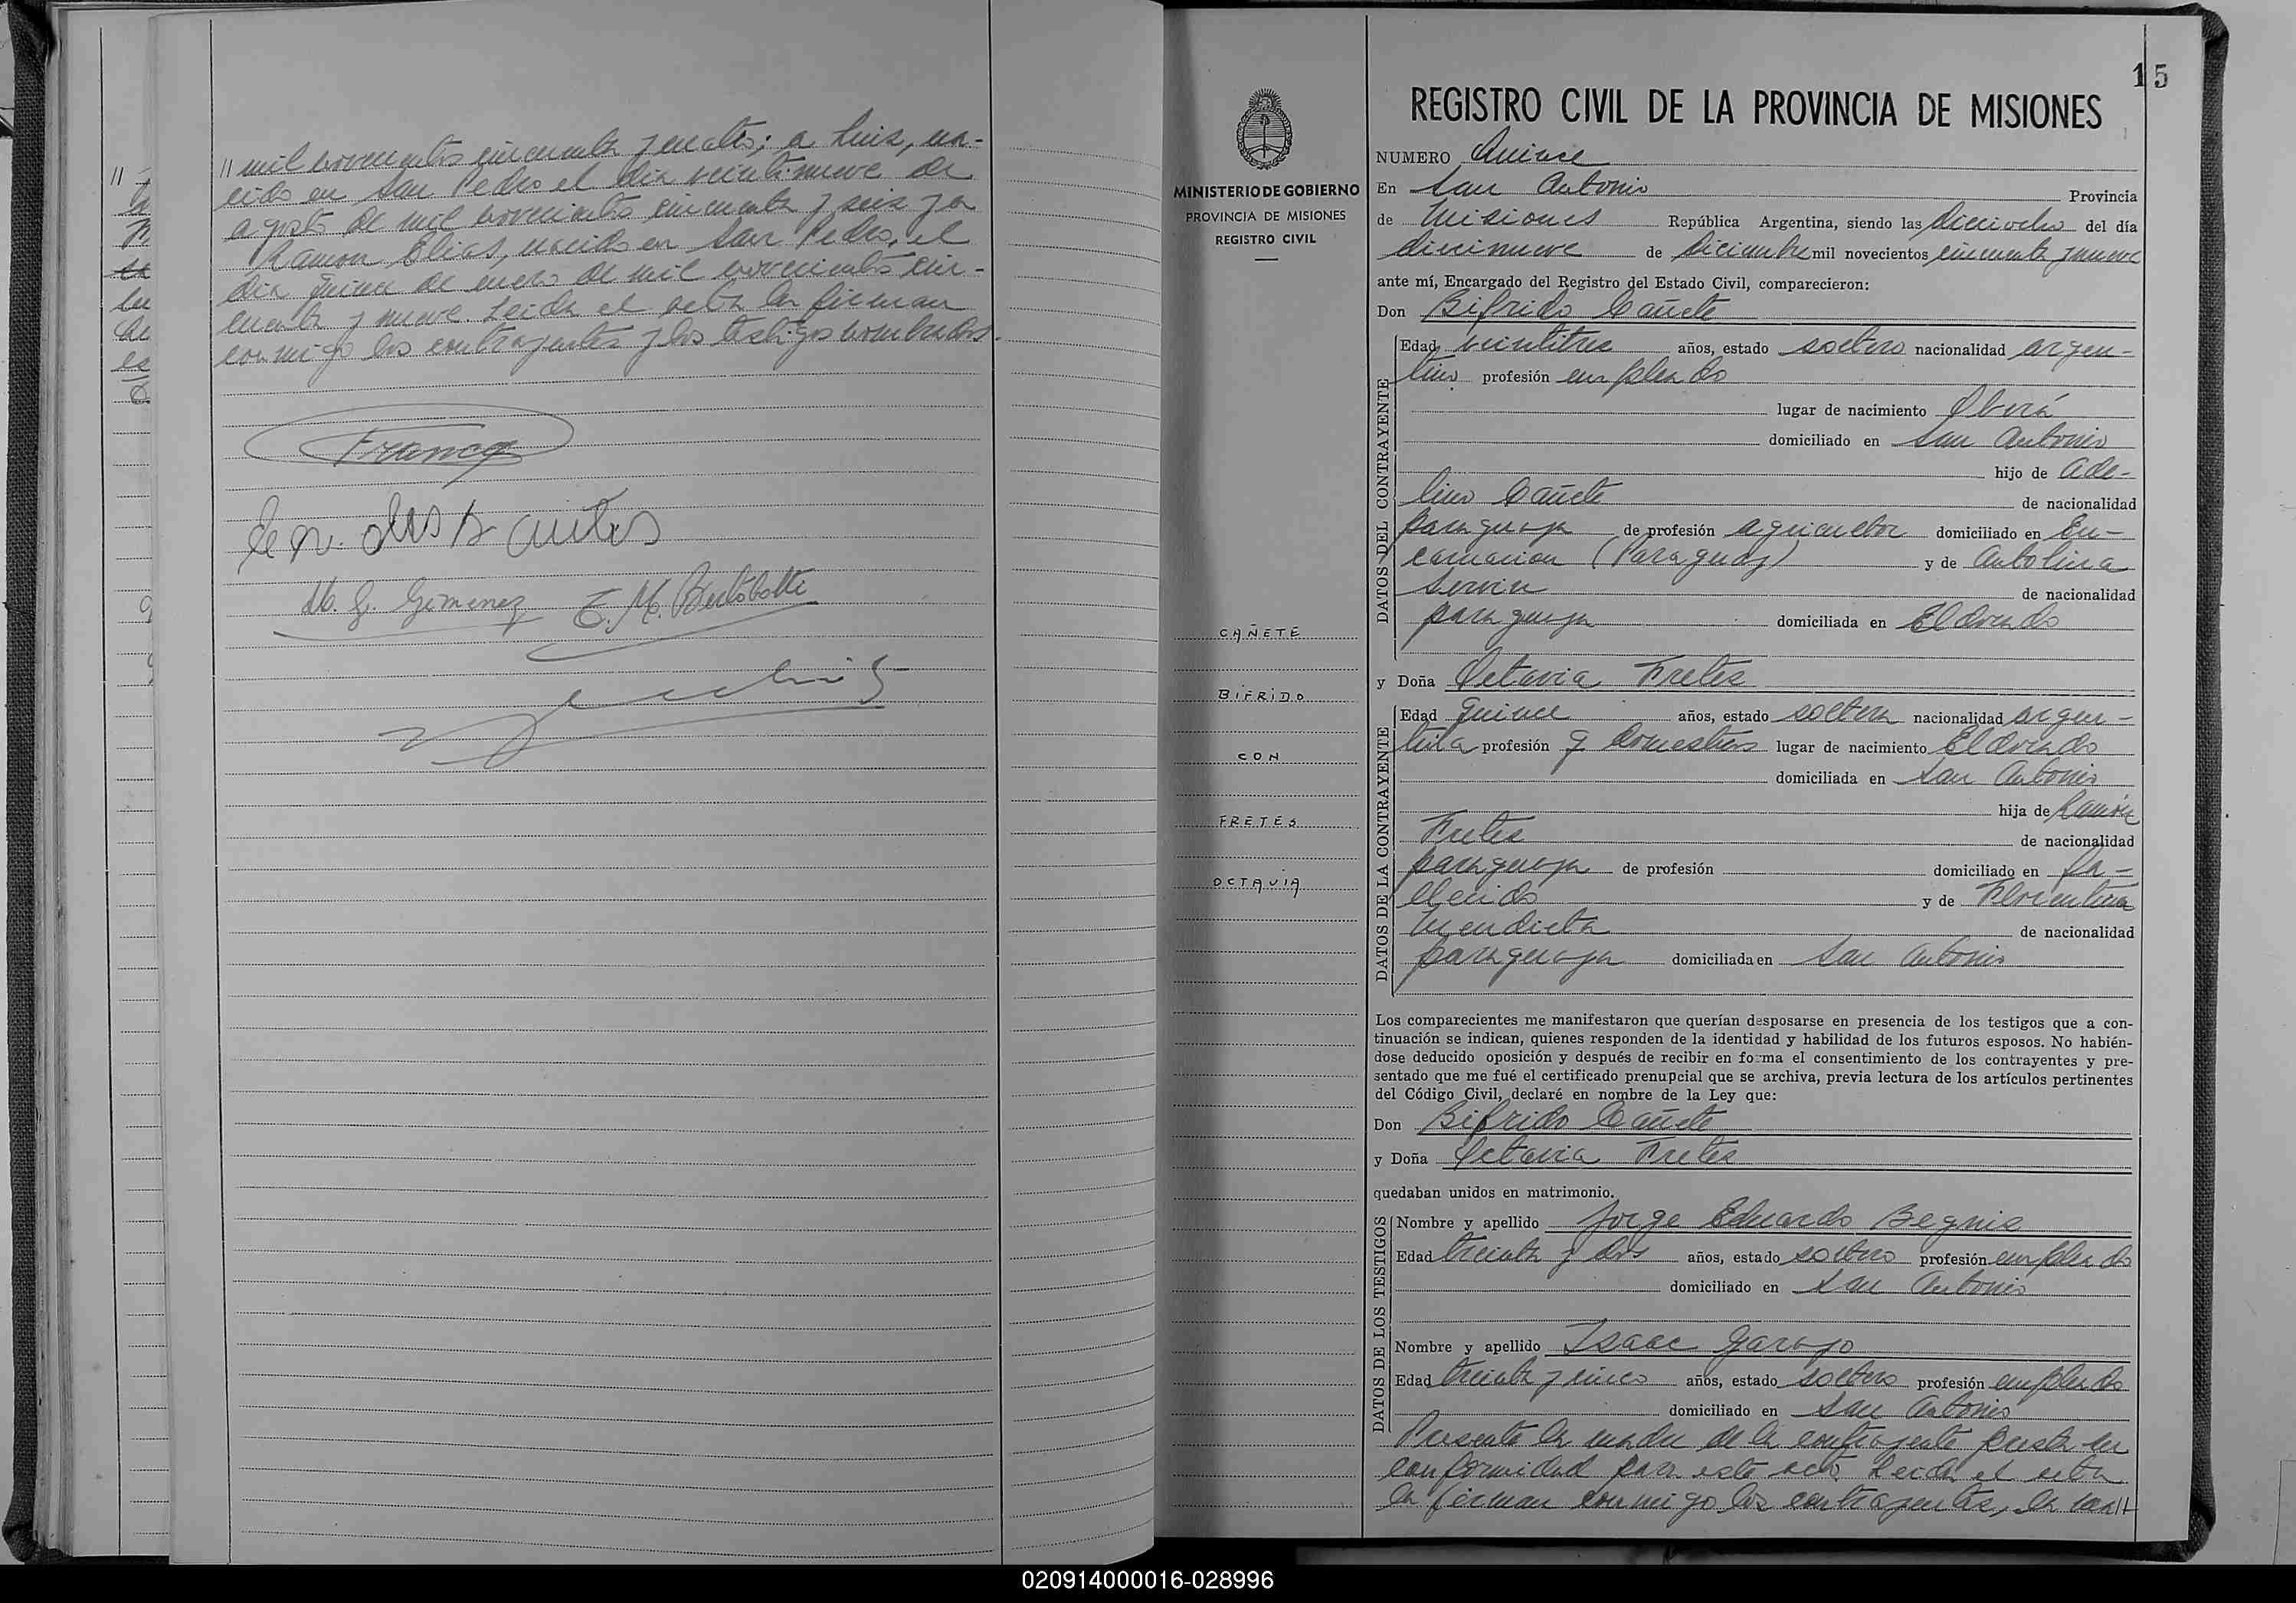 // mil novecientos cincuenta y cuatro; a Luis, na-
cido en San Pedro el dia veintinueve de
agosto de mil novecientos cincuenta y seis y a
Ramon Elias, nacido en San Pedro, el
dia quince de enero de mil novecientos cin-
cuenta y nueve. Leida el acta la firman
conmigo los contrayentes y los testigos nombrados.
Franco
dos Santos
M. G. Gimenez E. M. Bertolotti
15
REGISTRO CIVIL DE LA PROVINCIA DE MISIONES
MINISTERIO DE GOBIERNO
PROVINCIA DE MISIONES
REGISTRO CIVIL
CAÑETE
BIFRIDO
CON
FRETES
OCTAVIA
NUMERO Quince
En San Antonio Provincia
de Misiones República Argentina, siendo las dieciocho del día
diecinueve de diciembre mil novecientos cincuenta y nueve
ante mí, Encargado del Registro del Estado Civil, comparecieron:
Don Bifrido Cañete
DATOS DEL CONTRAYENTE
Edad veintitres años, estado soltero nacionalidad argen-
tino profesión empleado
lugar de nacimiento Oberá
domiciliado en San Antonio
hijo de Ade-
lino Cañete de nacionalidad
paraguaya de profesión agricultor domiciliado en En-
carnacion (Paraguay) y de Antolina
Servin de nacionalidad
paraguaya domiciliada en Eldorado
y Doña Octavia Fretes
DATOS DE LA CONTRAYENTE
Edad quince años, estado soltera nacionalidad argen-
tina profesión q domesticos lugar de nacimiento Eldorado
domiciliada en San Antonio
hija de Ramón
Fretes de nacionalidad
paraguaya de profesión domiciliado en fa-
llecido y de Florentina
Mendieta de nacionalidad
paraguaya domiciliada en San Antonio
Los comparecientes me manifestaron que querían desposarse en presencia de los testigos que a con-
tinuación se indican, quienes responden de la identidad y habilidad de los futuros esposos. No habién-
dose deducido oposición y después de recibir en forma el consentimiento de los contrayentes y pre-
sentado que me fué el certificado prenupcial que se archiva, previa lectura de los artículos pertinentes
del Código Civil, declaré en nombre de la Ley que:
Don Bifrido Cañete
y Doña Octavia Fretes
quedaban unidos en matrimonio.
DATOS DE LOS TESTIGOS
Nombre y apellido Jorge Eduardo Begnis
Edad treinta y dos años, estado soltero profesión empleado
domiciliado en San Antonio
Nombre y apellido Isaac Garayo
Edad treinta y cinco años, estado soltero profesión empleado
domiciliado en San Antonio
Presente la madre de la contrayente presta su
conformidad para este acto. Leida el acta
la firman conmigo los contrayentes, la ma//
020914000016-028996